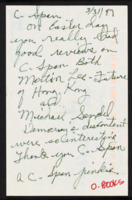 C-Span 3/31/97
On Easter day
you really had
good reviews on
C-Span Both
Martin Lee - Future
of Hong Kong
and
Michael Sandel
Democracy's discontent
were so interesting
Thank you C-Span
A C-Span junkie
O-BOOKS